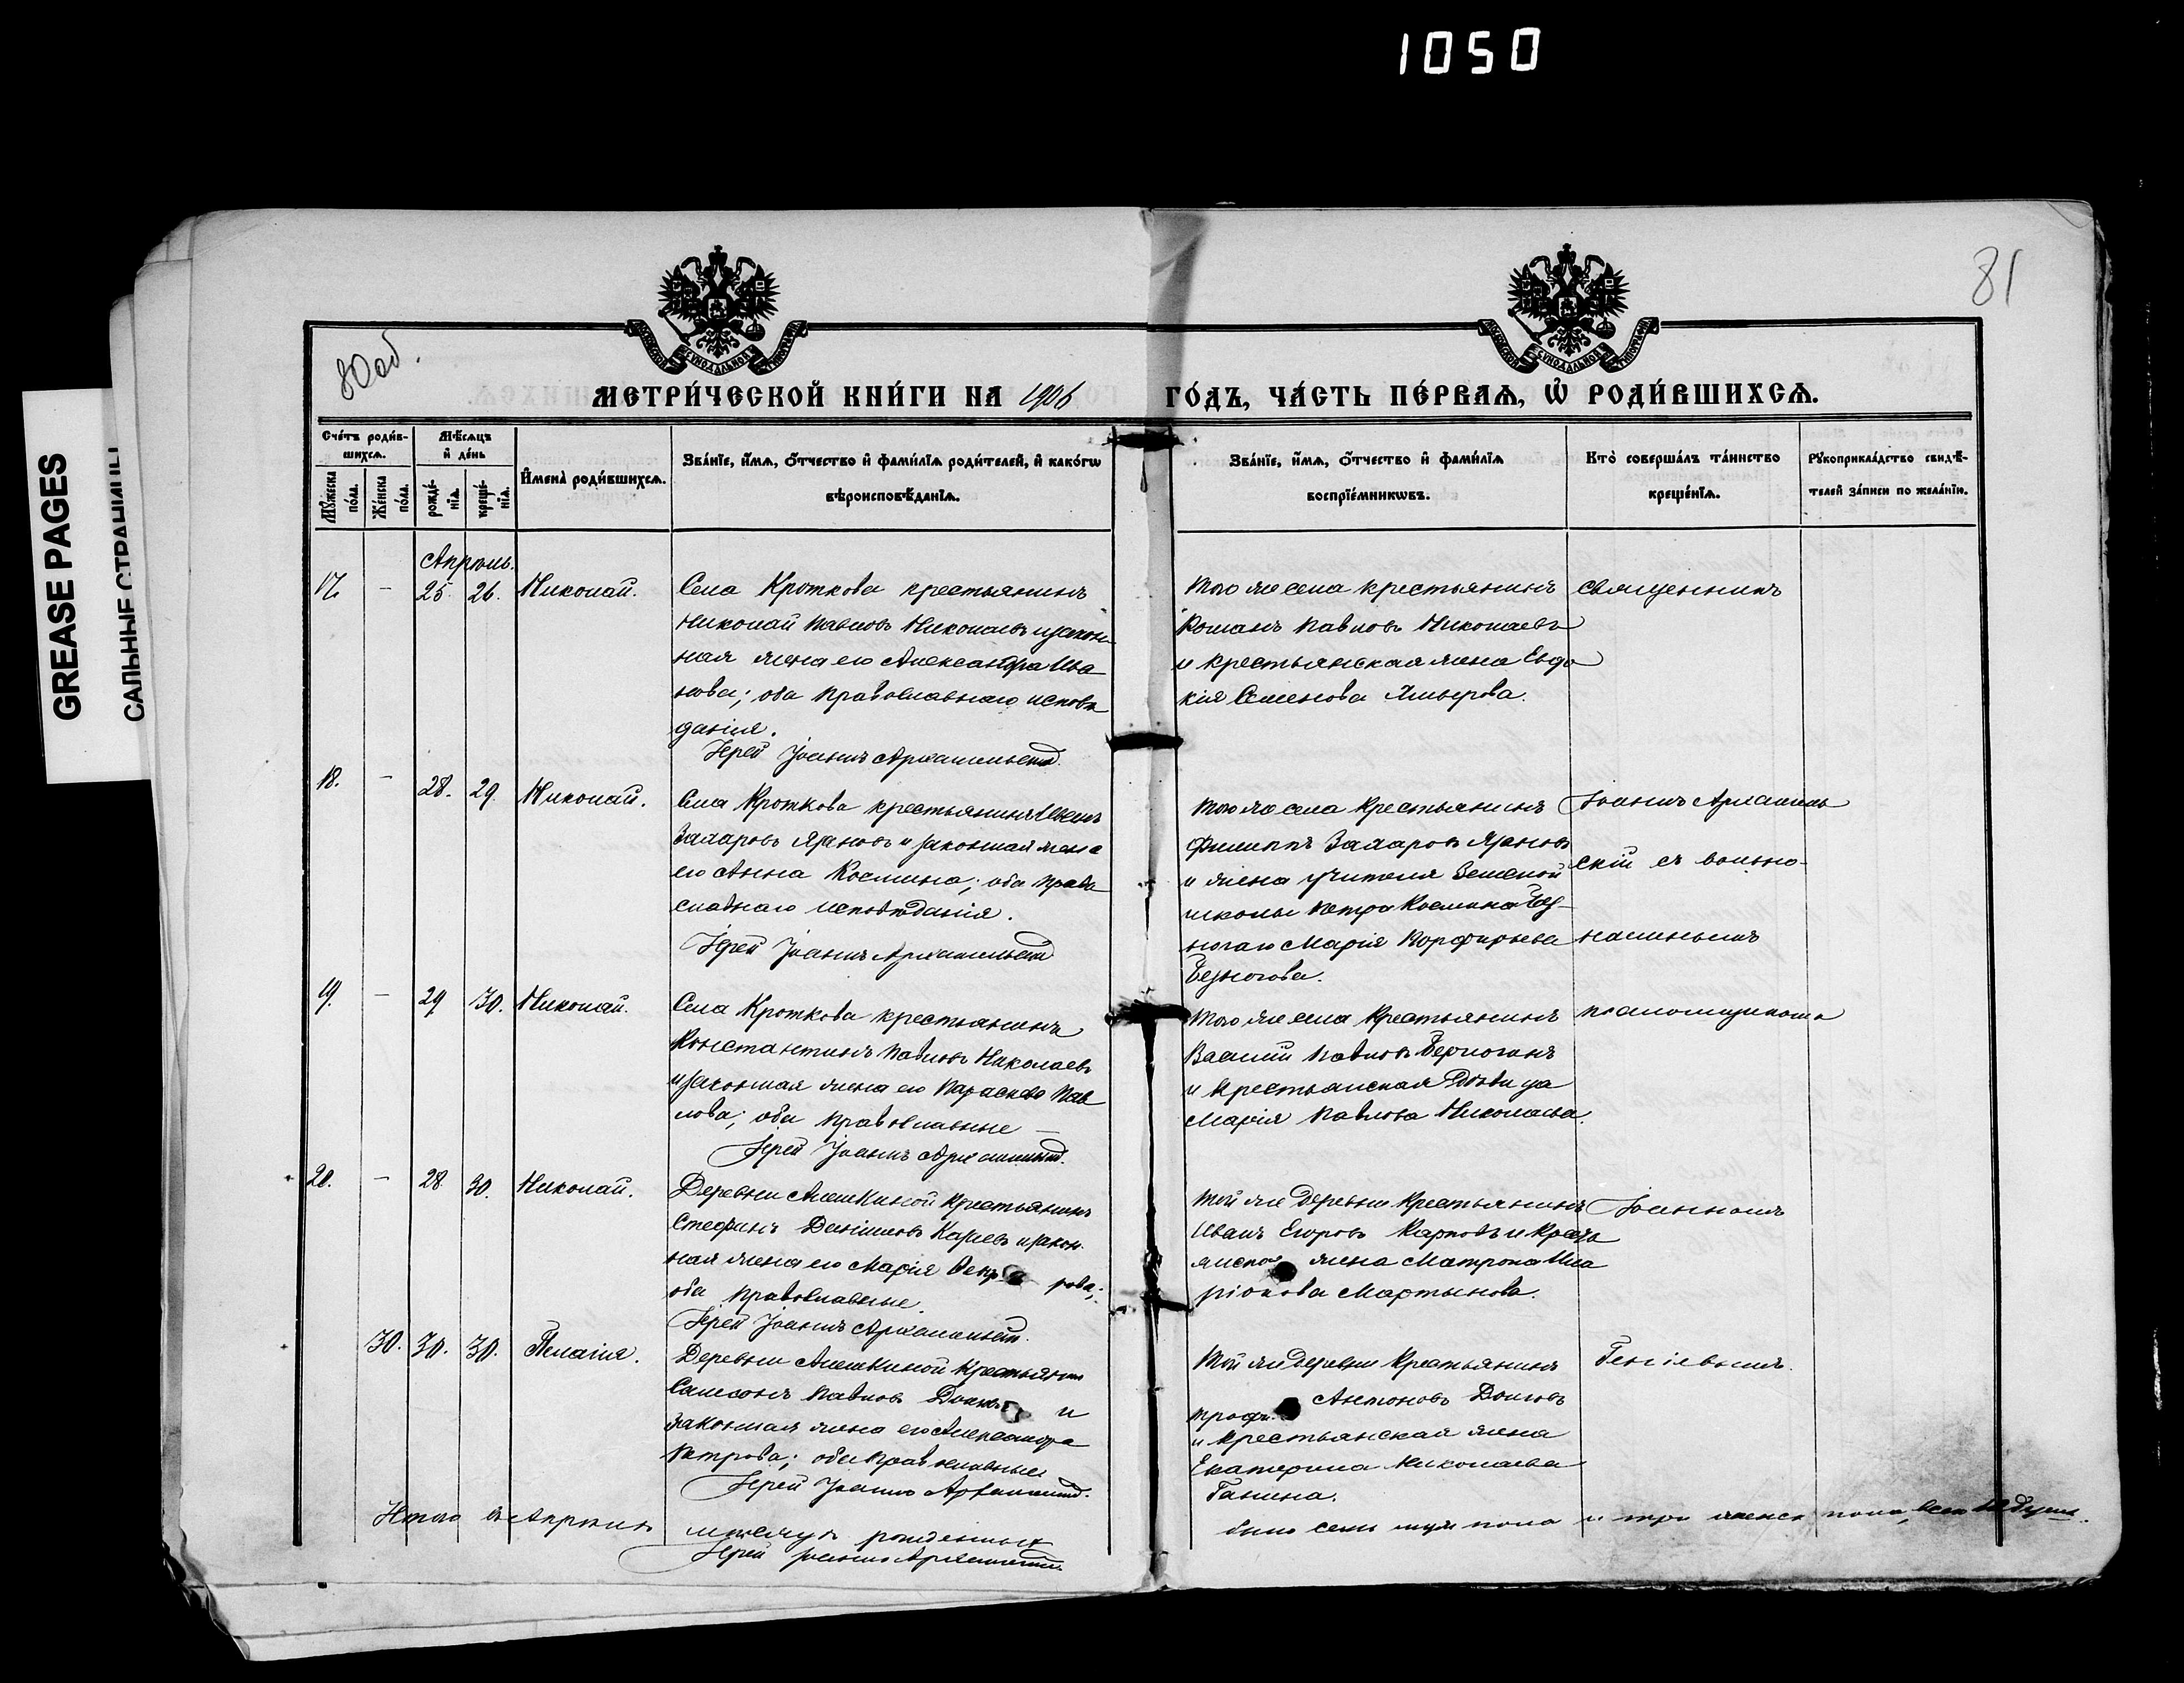 1050
GREASE PAGES
САЛЬНЫЕ СТРАНИЦЫ
81
80об.
МЕТРИ́ЧЕСКОЙ КНИ́ГИ НА 1906 ГО́ДЪ, ЧА́СТЬ ПЕ́РВАѦ, Ѡ҆ РОДИ́ВШИХСѦ.
Сче́тъ роди́в-
шихсѧ.
Мꙋ́жеска по́ла.
Же́нска по́ла.
Мѣ́сѧцъ
и҆ де́нь
рожде́-нїѧ.
креще́-нїѧ.
И҆мена̀ роди́вшихсѧ.
Зва́нїе, и҆́мѧ, ѻ҆́тчество и҆ фами́лїѧ роди́телей, и҆ како́гѡ
вѣроисповѣ́данїѧ.
Зва́нїе, и҆́мѧ, ѻ҆́тчество и҆ фами́лїѧ
воспрїе́мникѡвъ.
Кто̀ соверша́лъ та́инство
креще́нїѧ.
Рꙋкоприкла́дство свидѣ́-
телей за́писи по жела́нїю.
Апрѣль.
17. - 25. 26. Николай.
Села Кроткова крестьянинъ
Николай Павловъ Николаевъ и закон
ная жена его Александра Ива
нова; оба православнаго исповѣ
данія.
Іерей Іоаннъ Архангельскій
Того же села крестьянинъ
Романъ Павловъ Николаевъ
и крестьянская жена Евдо
кія Семенова
священникъ
18. - 28. 29. Николай.
Села Кроткова крестьянинъ
Захаровъ и законная жена
его Анна Космина; оба право
славнаго исповѣданія.
Іерей Іоаннъ Архангельскій
Того же села крестьянинъ
Филиппъ Захаровъ
и жена учителя Земской
школы Петра Космина Без-
ногаго Марія Порфирьева
Безногова.
Іоаннъ Архангель
скій съ
19. - 29 30. Николай.
Села Кроткова крестьянинъ
Константинъ Павловъ Николаевъ
и законная жена его Параскева Пав
лова; оба православные —
Іерей Іоаннъ Архангельскій.
Того же села крестьянинъ
Василій Павловъ
и крестьянская дѣвица
Марія Павлова Николаева.
псаломщикомъ
20. - 28. 30. Николай.
Деревни Алешкиной крестьянинъ
Стефанъ Даніиловъ и закон.
ная жена его Марія рова;
оба православные.
Іерей Іоаннъ Архангельскій.
Той же деревни крестьянинъ
Иванъ Егоровъ Карповъ и кресть
янская жена Матрона Ила
ріонова Мартынова.
Іоанномъ
30. 30. 30. Пелагія.
Деревни Алешкиной крестьянинъ
Самсонъ Павловъ и
законная жена его Александра
Петрова; оба православные
Іерей Іоаннъ Архангельскій.
Той же деревни крестьянинъ
Антоновъ Долговъ
и крестьянская жена
Екатерина Николаева
Ганина.
Итого въ Апрѣлѣ мѣсяцѣ рожденныхъ было семь муж пола и три женск пола, всего 10 душъ.
Іерей Іоаннъ Архангельскій.